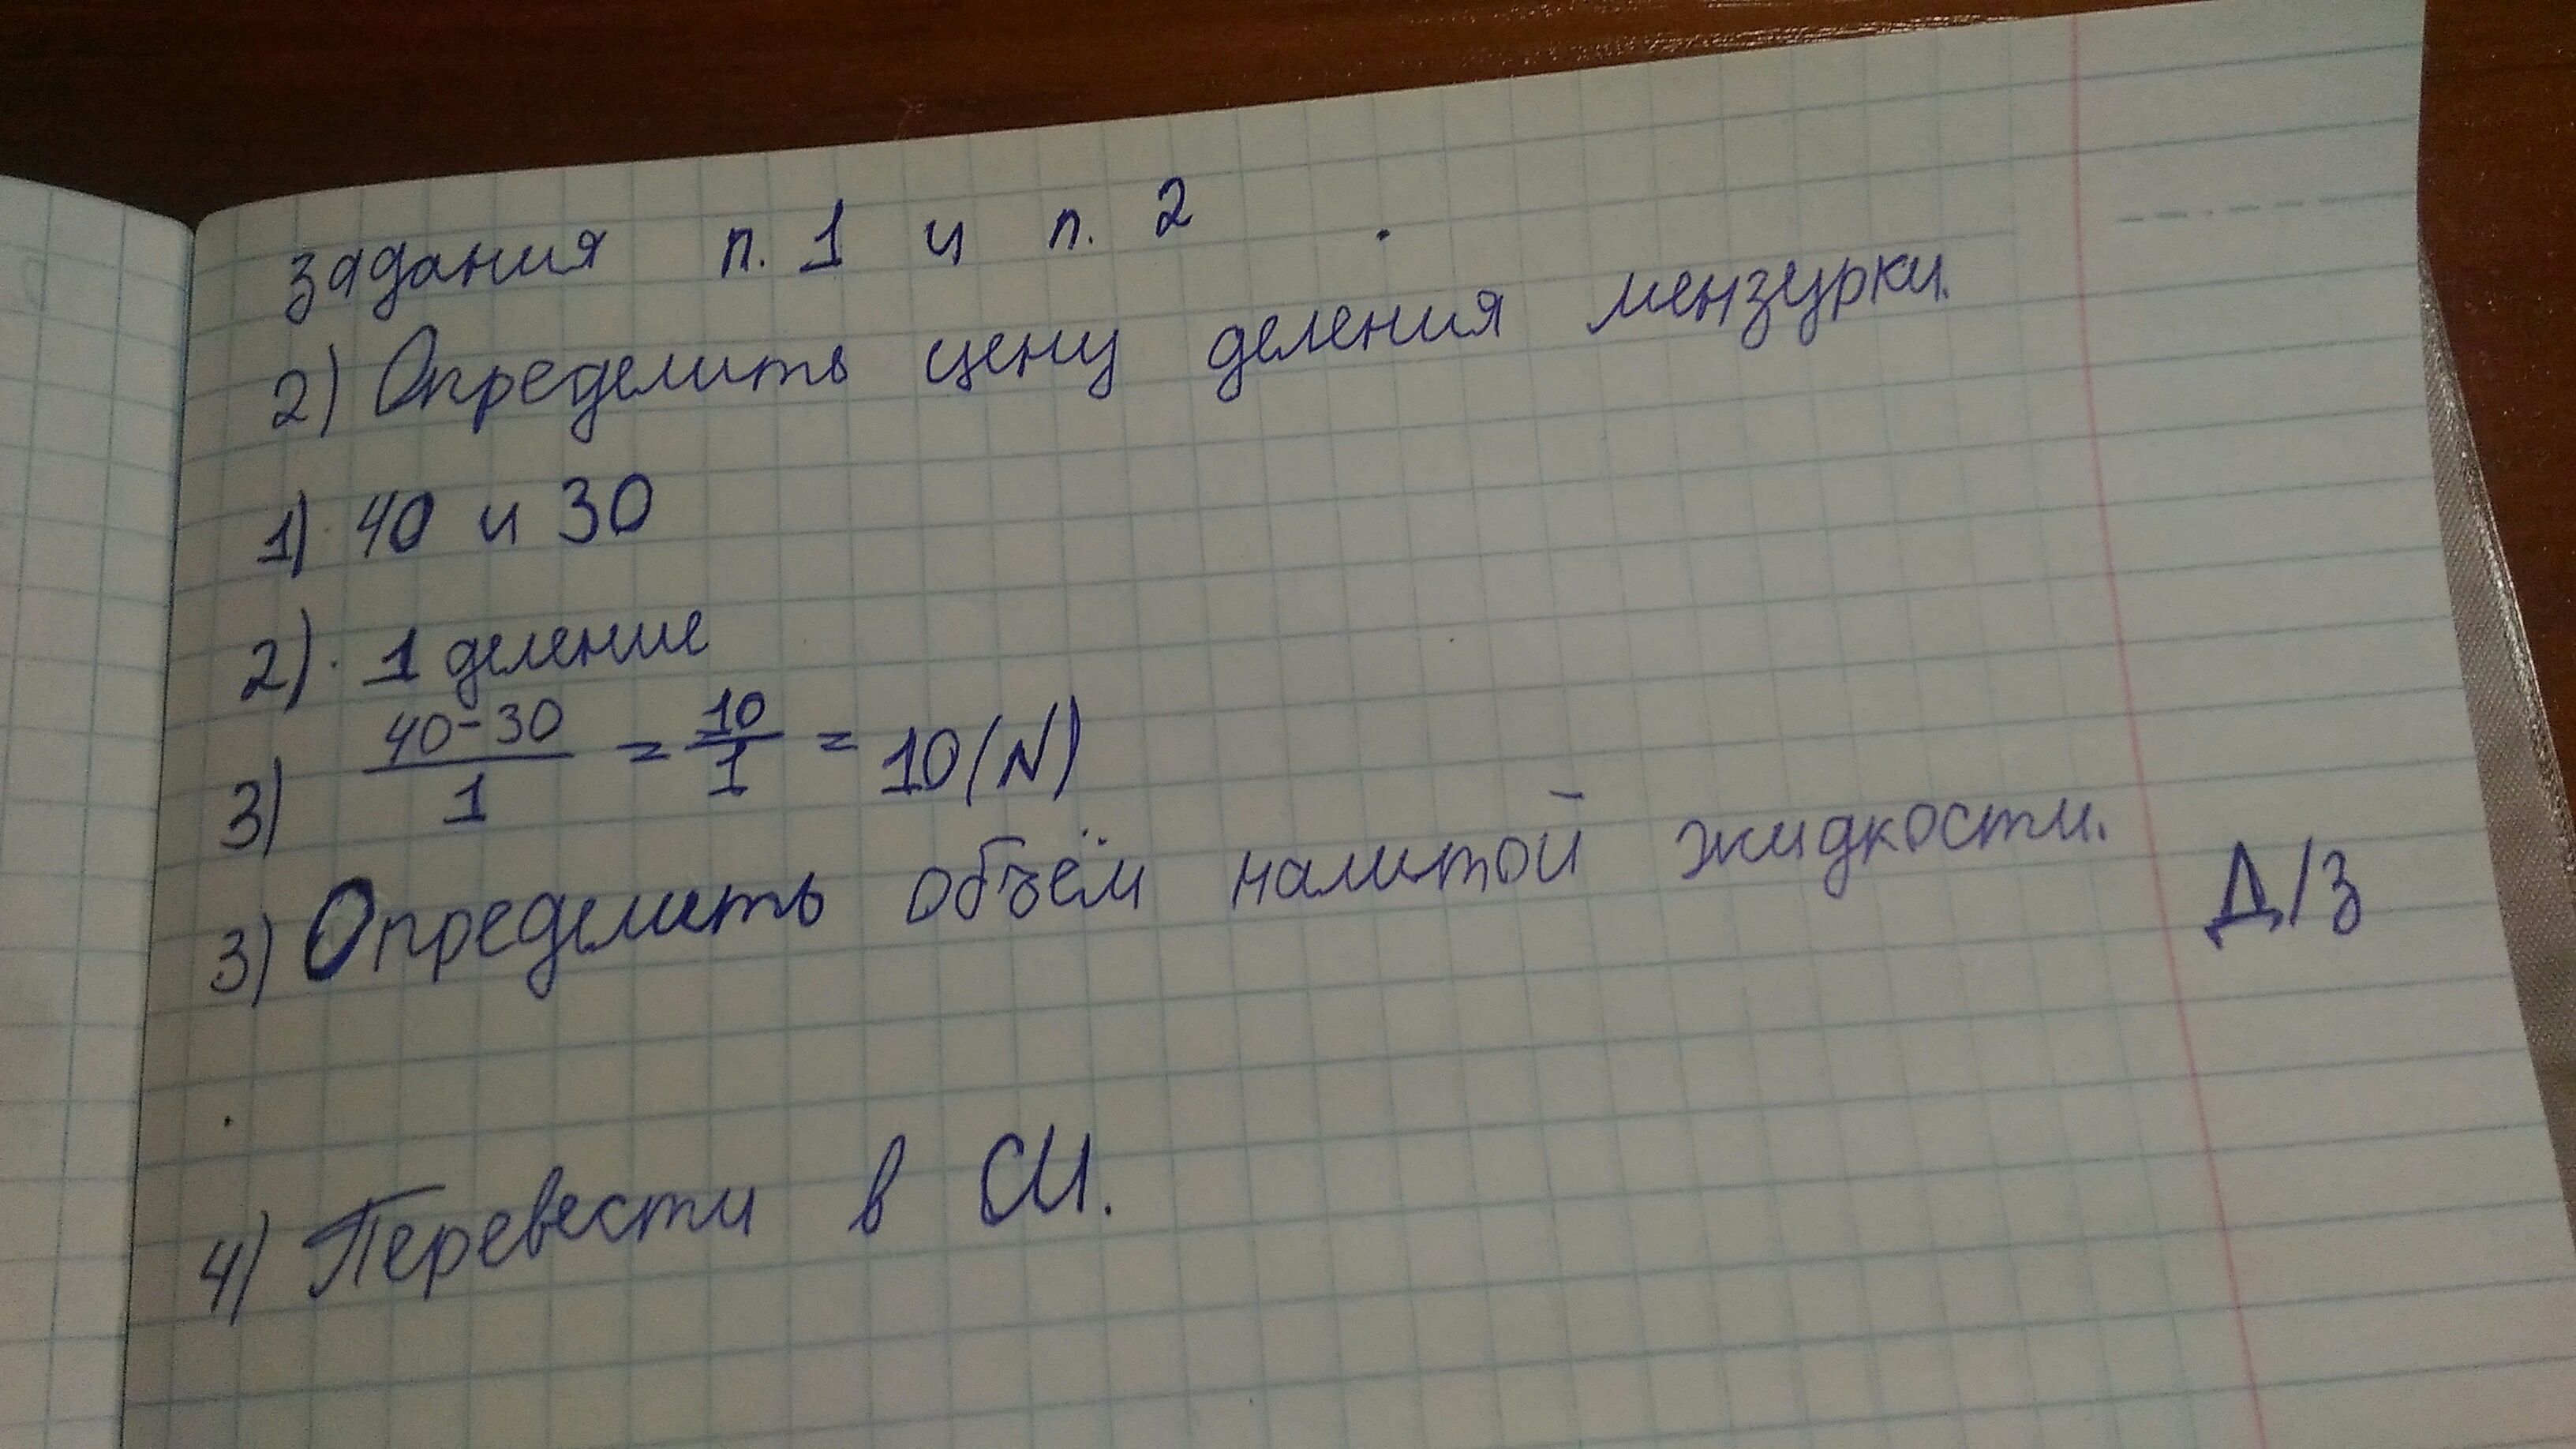 задания п. 1 и п. 2
2) Определить цену деления мензурки.
1) 40 и 30
2) 1 деление
3) \frac{40-30}{1} = \frac{10}{1} = 10 (N)
3) Определить объём налитой жидкости.
Д/з
4) Перевести в СИ.